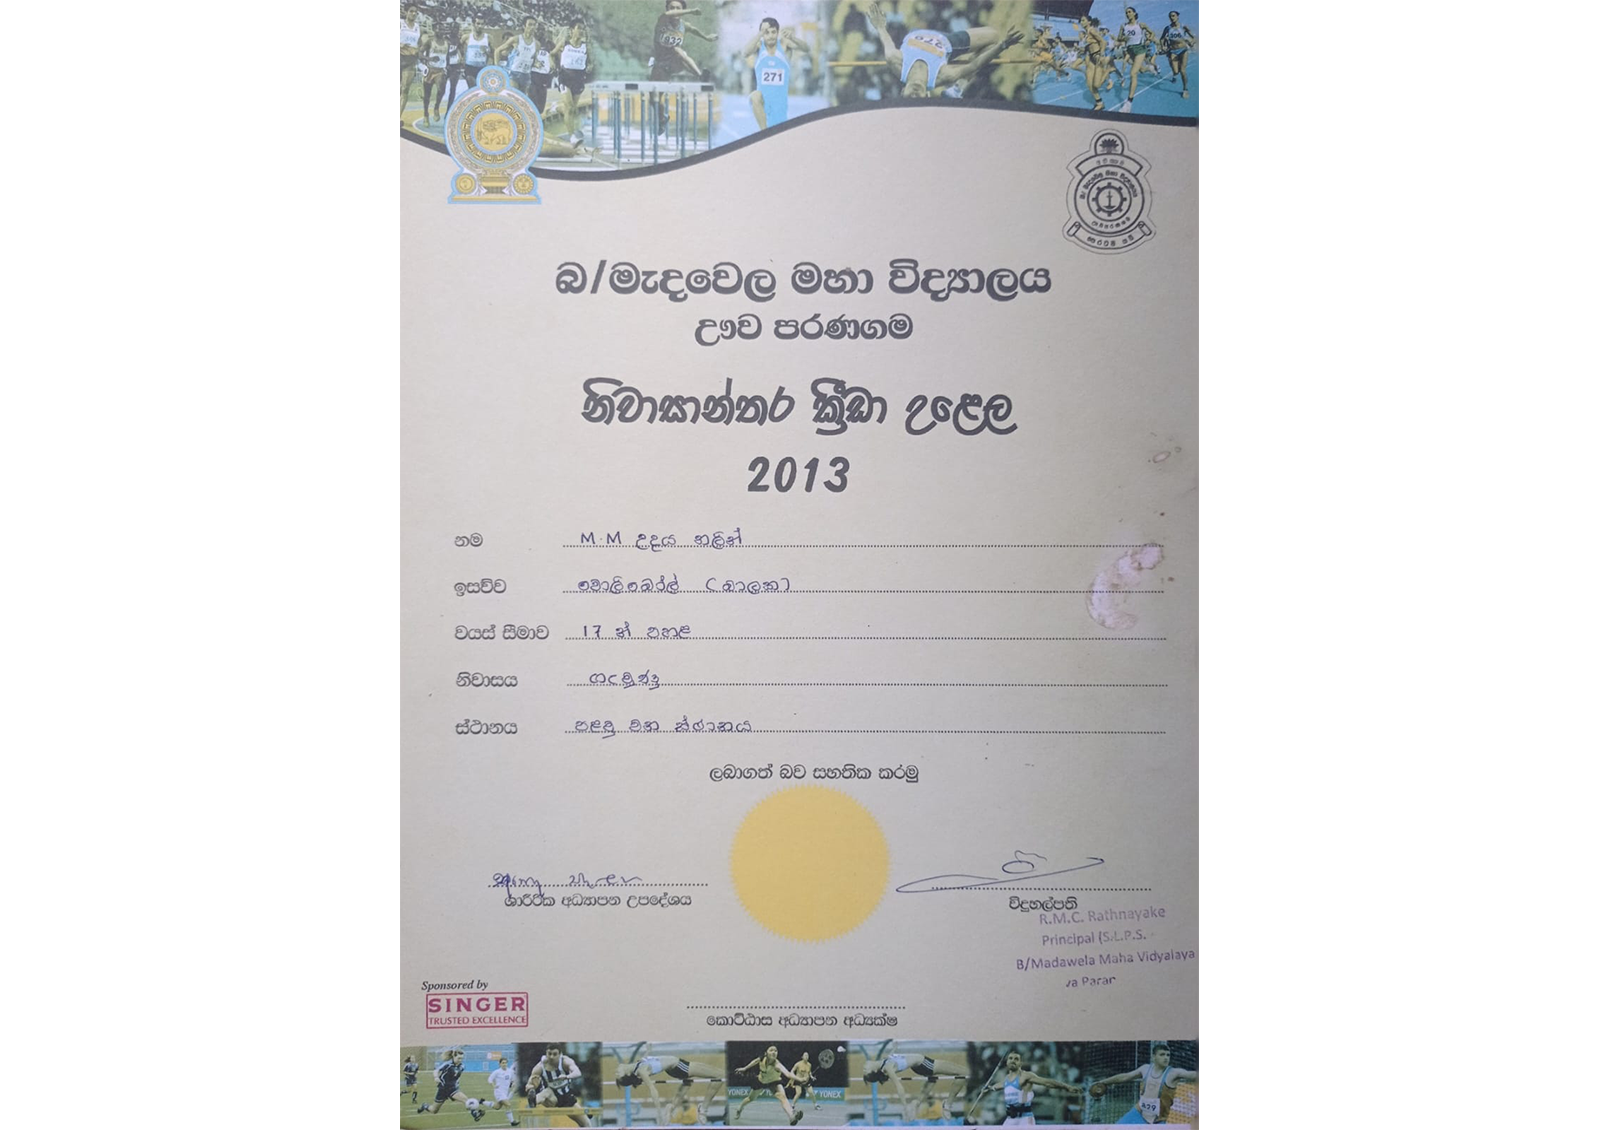 බ/මැදවෙල මහා විද්‍යාලය
ඌව පරණගම
නිවාසාන්තර ක්‍රීඩා උළෙල
2013
නම M.M උදය නලින්
ඉසව්ව වොලිබෝල් (බාලක)
වයස් සීමාව 17 න් පහළ
නිවාසය ගැමුණු
ස්ථානය පළමු වන ස්ථානය
ලබාගත් බව සහතික කරමු
ශාරීරික අධ්‍යාපන උපදේශය
විදුහල්පති
R.M.C. Rathnayake
Principal (S.L.P.S.
B/Madawela Maha Vidyalaya
va Paran
Sponsored by
SINGER
TRUSTED EXCELLENCE
කොට්ඨාස අධ්‍යාපන අධ්‍යක්ෂ
271